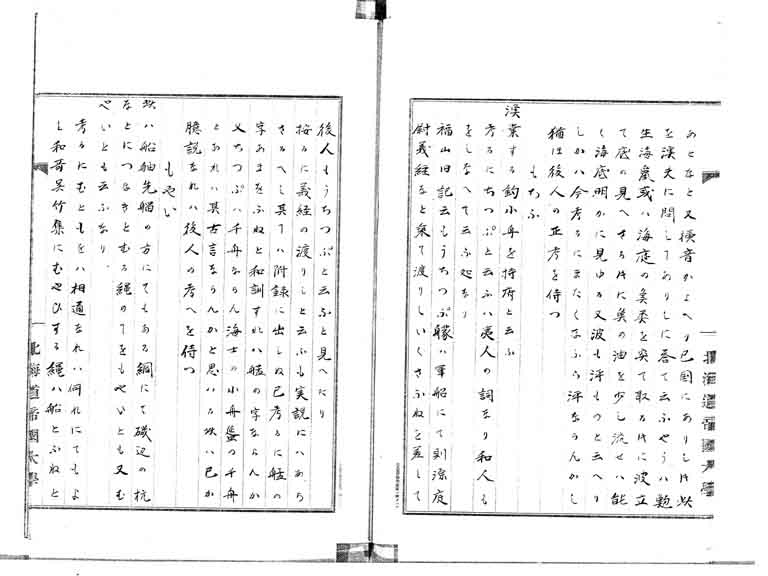 あとなと又横音かよへり己国にありし时此
を漢史に問してありしに答て云ふやうハ鮑
生海巌或ハ海庭の魚委を突て取る时に波立
て底の見へさる时に魚の油を少し流せハ能
く海底明かに見ゆる又波も浮ものと云へり
しかハ今考るにまたくなふら浮ならんかし
猶ほ後人の正考を侍つ
もちふ
漢業する釣小舟を持府と云ふ
考るにちつぷと云ふハ夷人の詞なり和人も
をしなへて云ふ処なり
福山旧記云もうちつぷ艨ハ軍船にて判源度
尉義經など乗て渡りしいくさふねを差して
北海道帝國大學
後人もうちつぷと云ふと見へたり
按るに義经の渡りしと云ふも実説にハあら
さるへし其てハ附録に出しぬ己考るに艋の
字あまをふねと和訓すれハ艋の字ならんか
又ちつぷハ千舟ならん海士の小舟蜑の千舟
とあれハ其古言をらんかと思ハる次ハ已か
臆説なれハ後人の考へを侍つ
もやい
此ハ船舳先艫の方にてもある綱にて磯辺の杭
なとにつなきとむる縄のてをもやいとも又む
やいとも云ふなり
考るにむともをハ相通なれハ何れにてもよ
し和哥呉竹集にむやひする縄ハ船とふねと
北海道帝國大學